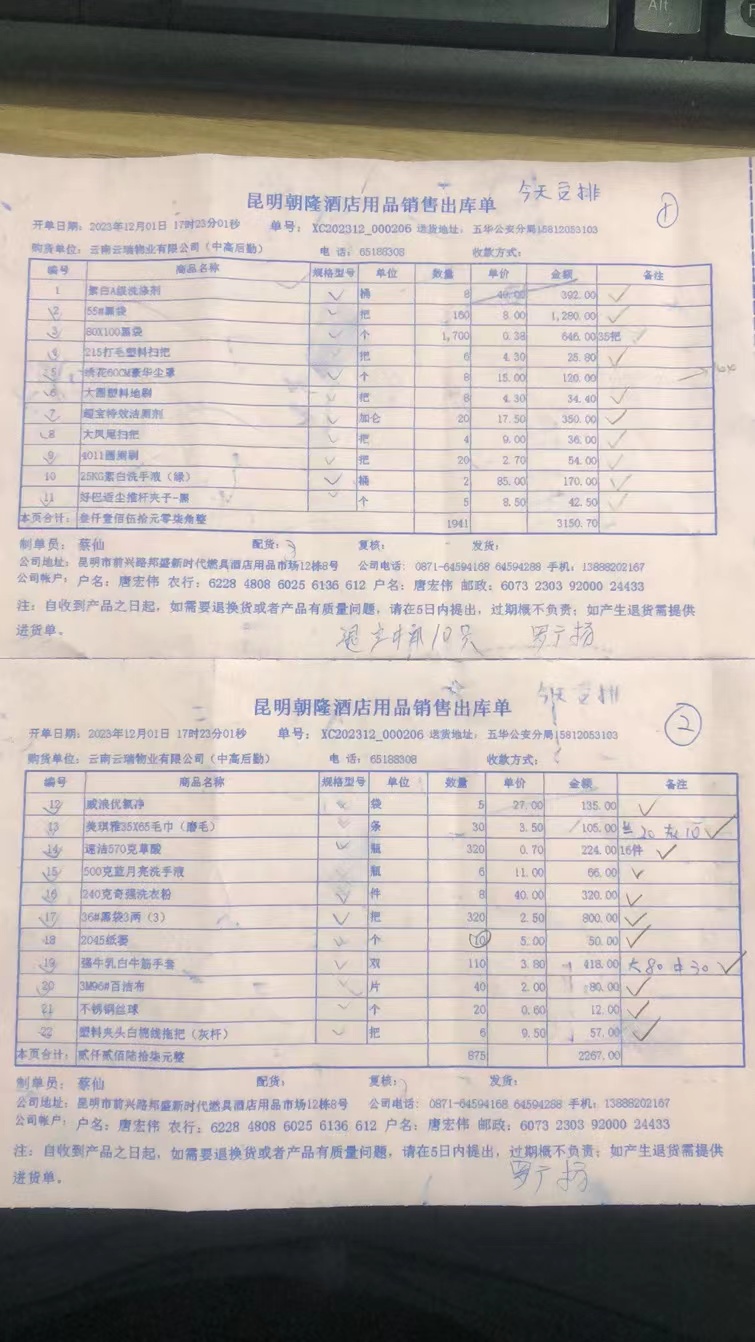 Alt
今天安排
昆明朝隆酒店用品销售出库单 ①
开单日期：2023年12月01日 17时23分01秒 单号：XC202312_000206 送货地址：五华公安分局15812053103
购货单位：云南云瑞物业有限公司（中高后勤） 电 话：65188308 收款方式：
编号 商品名称 规格型号 单位 数量 单价 金额 备注
1 絮白A级洗涤剂 桶 8 49.00 392.00
2 55#黑袋 把 160 8.00 1,280.00
3 80X100黑袋 个 1,700 0.38 646.00 35把
4 215打毛塑料扫把 把 6 4.30 25.80
5 绣花60CM豪华尘罩 个 8 15.00 120.00
6 大圆塑料地刷 把 8 4.30 34.40
7 超宝特效洁厕剂 加仑 20 17.50 350.00
8 大凤尾扫把 把 4 9.00 36.00
9 4011圆厕刷 把 20 2.70 54.00
10 25KG絮白洗手液（绿） 桶 2 85.00 170.00
11 好巴适尘推杆夹子-黑 个 5 8.50 42.50
本页合计： 叁仟壹佰伍拾元零柒角整 1941 3150.70
制单员： 蔡仙 配货： 复核： 发货：
公司地址： 昆明市前兴路邦盛新时代燃具酒店用品市场12栋8号 公司电话： 0871-64594168 64594288 手机：13888202167
公司帐户： 户名：唐宏伟 农行：6228 4808 6025 6136 612 户名：唐宏伟 邮政：6073 2303 92000 24433
注：自收到产品之日起，如需要退换货或者产品有质量问题，请在5日内提出，过期概不负责；如产生退货需提供
送货单。
退空桶10只 罗广扬
今天安排
昆明朝隆酒店用品销售出库单 ②
开单日期：2023年12月01日 17时23分01秒 单号：XC202312_000206 送货地址：五华公安分局15812053103
购货单位：云南云瑞物业有限公司（中高后勤） 电 话：65188308 收款方式：
编号 商品名称 规格型号 单位 数量 单价 金额 备注
12 威浪优氯净 袋 5 27.00 135.00
13 美琪雅35X65毛巾（磨毛） 条 30 3.50 105.00 兰20 灰10
14 速洁570克草酸 瓶 320 0.70 224.00 16件
15 500克蓝月亮洗手液 瓶 6 11.00 66.00
16 240克奇强洗衣粉 件 8 40.00 320.00
17 36#黑袋3两（3） 把 320 2.50 800.00
18 2045纸篓 个 10 5.00 50.00
19 强牛乳白牛筋手套 双 110 3.80 418.00 大80 中30
20 3M96#百洁布 片 40 2.00 80.00
21 不锈钢丝球 个 20 0.60 12.00
22 塑料夹头白棉线拖把（灰杆） 把 6 9.50 57.00
本页合计： 贰仟贰佰陆拾柒元整 875 2267.00
制单员： 蔡仙 配货： 复核： 发货：
公司地址： 昆明市前兴路邦盛新时代燃具酒店用品市场12栋8号 公司电话： 0871-64594168 64594288 手机：13888202167
公司帐户： 户名：唐宏伟 农行：6228 4808 6025 6136 612 户名：唐宏伟 邮政：6073 2303 92000 24433
注：自收到产品之日起，如需要退换货或者产品有质量问题，请在5日内提出，过期概不负责；如产生退货需提供
送货单。
罗广扬